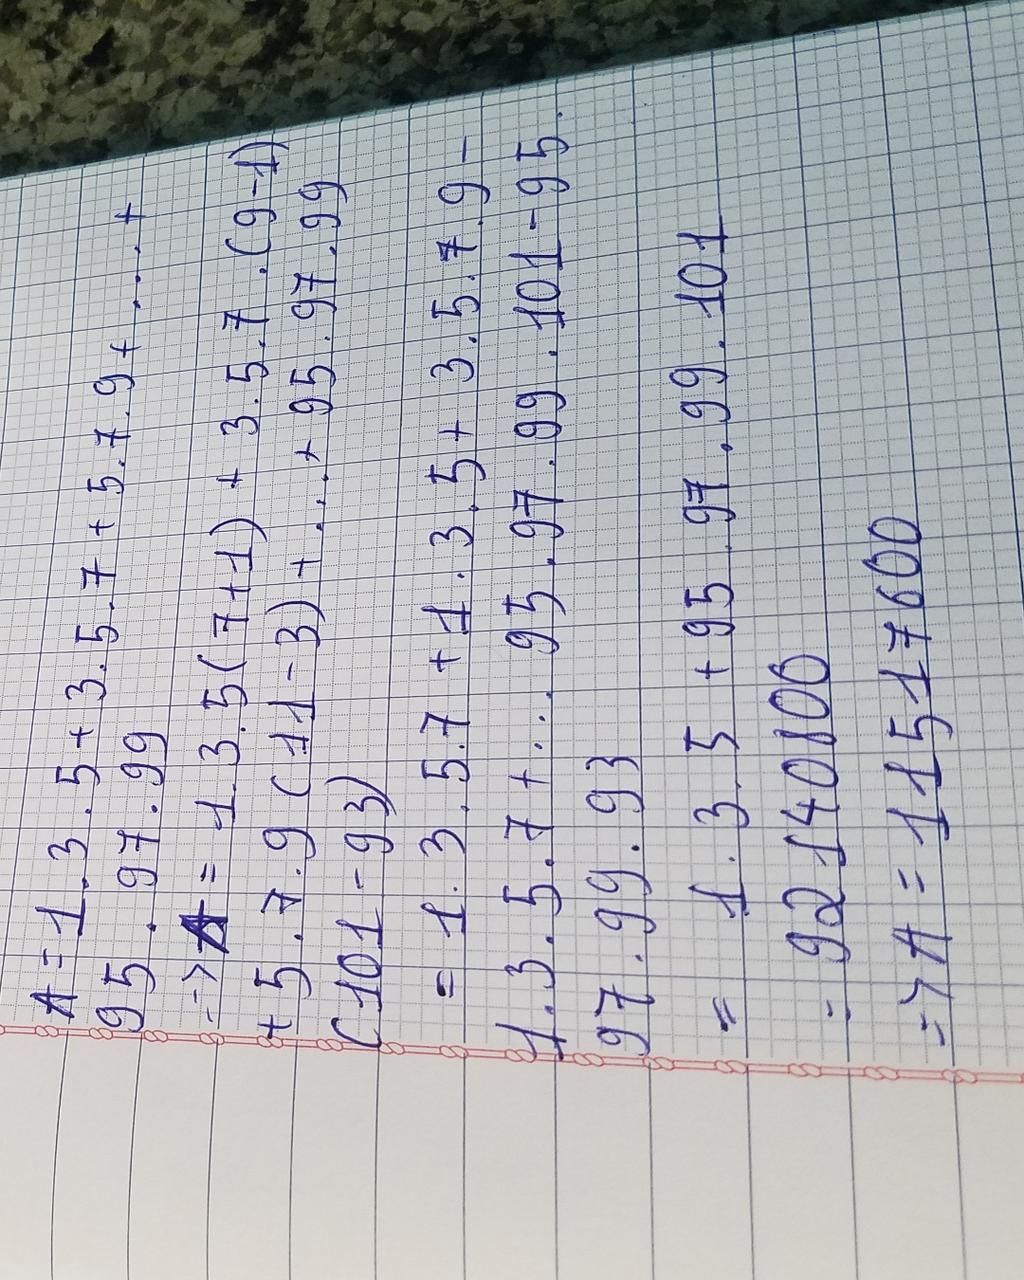 A = 1.3.5 + 3.5.7 + 5.7.9 + .... +
95.97.99
-> A = 1.3.5(7+1) + 3.5.7.(9-1)
+ 5.7.9(11-3) + ... + 95.97.99
(101-93)
= 1.3.5.7 + 1.3.5 + 3.5.7.9 -
1.3.5.7 + ... 95.97.99.101 - 95.
97.99.93
= 1.3.5 + 95.97.99.101
= 92140800
=> A = 11517600